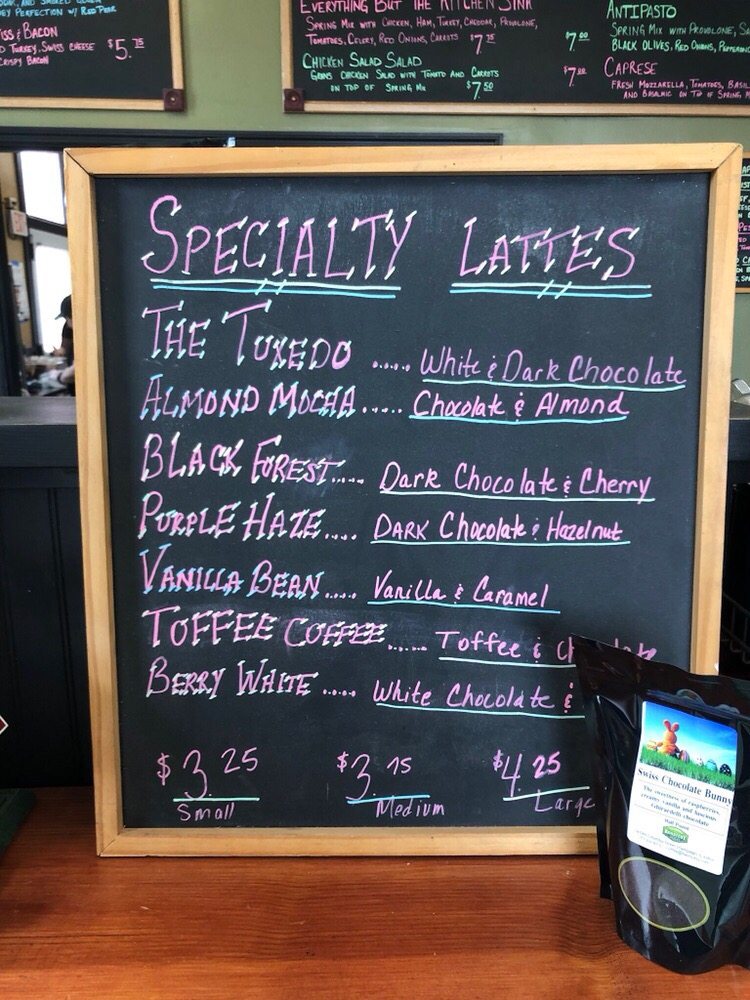 Perfection w/ Red Pear
iss & Bacon
Turkey, Swiss Cheese
Crispy Bacon
$5.75
Everything But The Kitchen Sink
Spring Mix with Chicken, Ham, Turkey, Cheddar, Provolone,
Tomatoes, Celery, Red Onions, Carrots $7.75
Chicken Salad Salad
Greens Chicken Salad with Tomato and Carrots
on top of Spring Mix $7.50
Antipasto
$7.00 Spring Mix with Provolone, Sa
Black Olives, Red Onions, Pepperonc
Caprese
$7.00 Fresh Mozzarella, Tomatoes, Basil
and Balsamic on top of Spring M
Specialty Lattes
The Tuxedo ...... White & Dark Chocolate
Almond Mocha..... Chocolate & Almond
Black Forest..... Dark Chocolate & Cherry
Purple Haze..... Dark Chocolate & Hazelnut
Vanilla Bean..... Vanilla & Caramel
Toffee Coffee...... Toffee & Chocolate
Berry White ..... White Chocolate &
$3.25 $3.75 $4.25
Small Medium Large
Swiss Chocolate Bunny
The sweetness of raspberries,
creamy vanilla and luscious
Ghirardelli chocolate
Half Pound